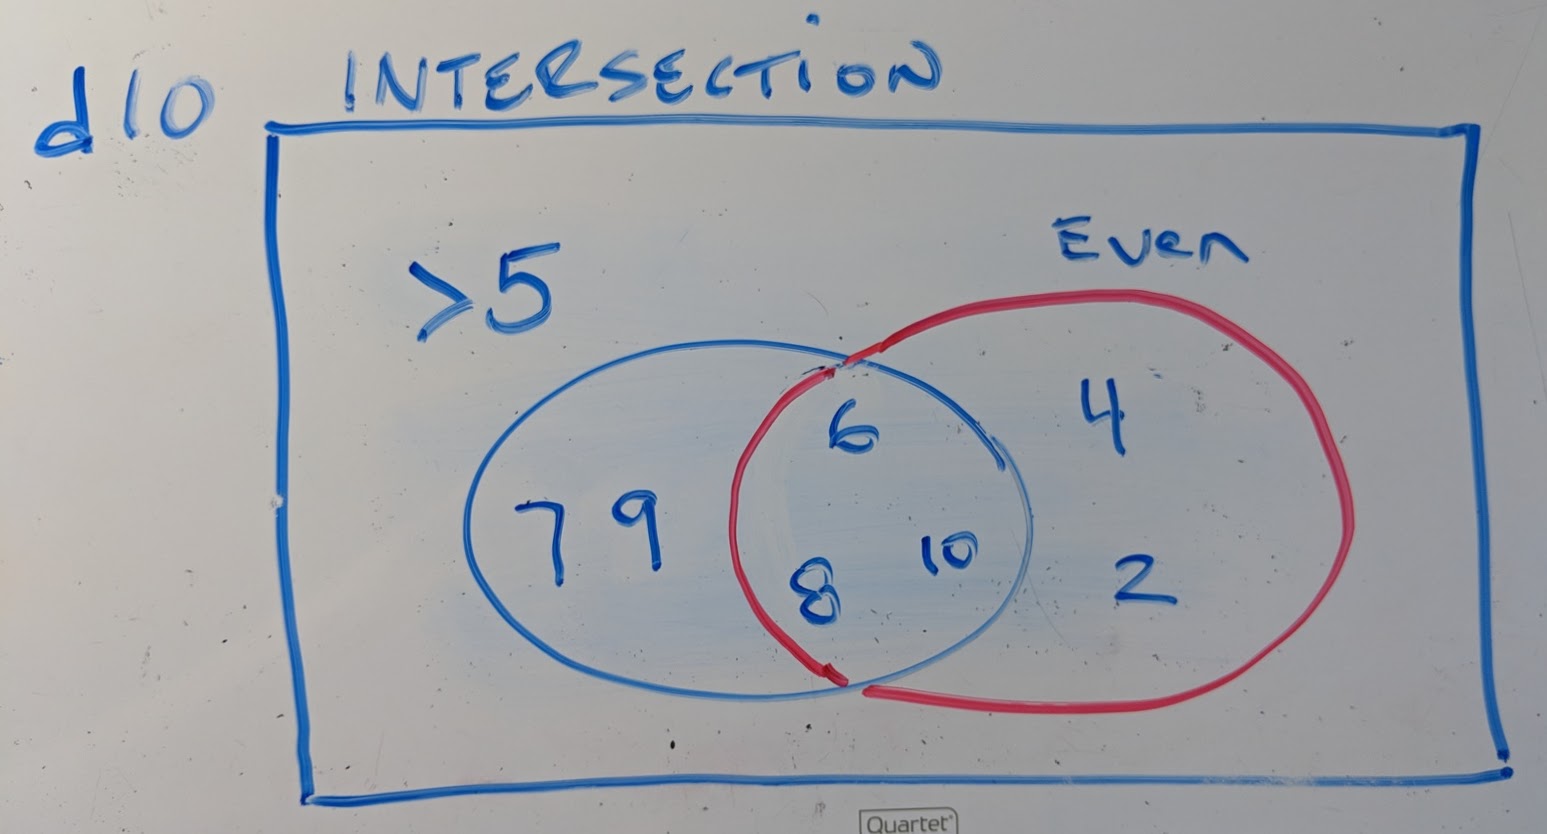 d10
INTERSECTION
>5
Even
6
4
7 9
10
8
2
Quartet